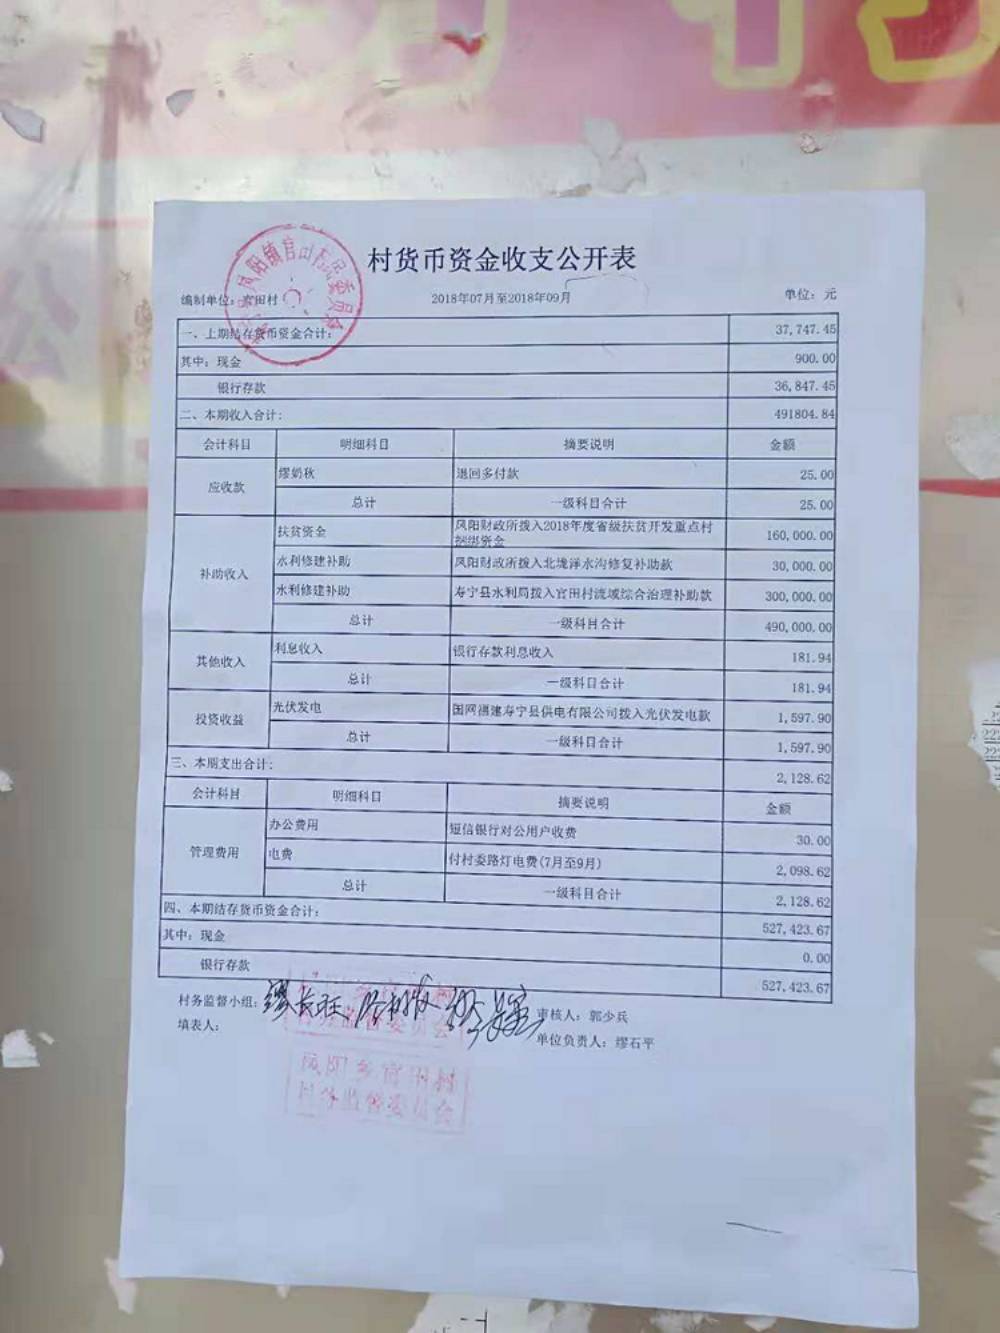 村货币资金收支公开表
编制单位：官田村 2018年07月至2018年09月 单位：元
一、上期结存货币资金合计： 37,747.45
其中：现金 900.00
银行存款 36,847.45
二、本期收入合计： 491804.84
会计科目 明细科目 摘要说明 金额
应收款 缪奶秋 退回多付款 25.00
总计 一级科目合计 25.00
补助收入 扶贫资金 凤阳财政所拨入2018年度省级扶贫开发重点村 160,000.00
捆绑资金
水利修建补助 凤阳财政所拨入北垅洋水沟修复补助款 30,000.00
水利修建补助 寿宁县水利局拨入官田村流域综合治理补助款 300,000.00
总计 一级科目合计 490,000.00
其他收入 利息收入 银行存款利息收入 181.94
总计 一级科目合计 181.94
投资收益 光伏发电 国网福建寿宁县供电有限公司拨入光伏发电款 1,597.90
总计 一级科目合计 1,597.90
三、本期支出合计： 2,128.62
会计科目 明细科目 摘要说明 金额
管理费用 办公费用 短信银行对公用户收费 30.00
电费 付村委路灯电费(7月至9月) 2,098.62
总计 一级科目合计 2,128.62
四、本期结存货币资金合计： 527,423.67
其中：现金 0.00
银行存款 527,423.67
村务监督小组： 缪长旺 审核人：郭少兵
填表人： 单位负责人：缪石平
凤阳乡官田村
村务监督委员会